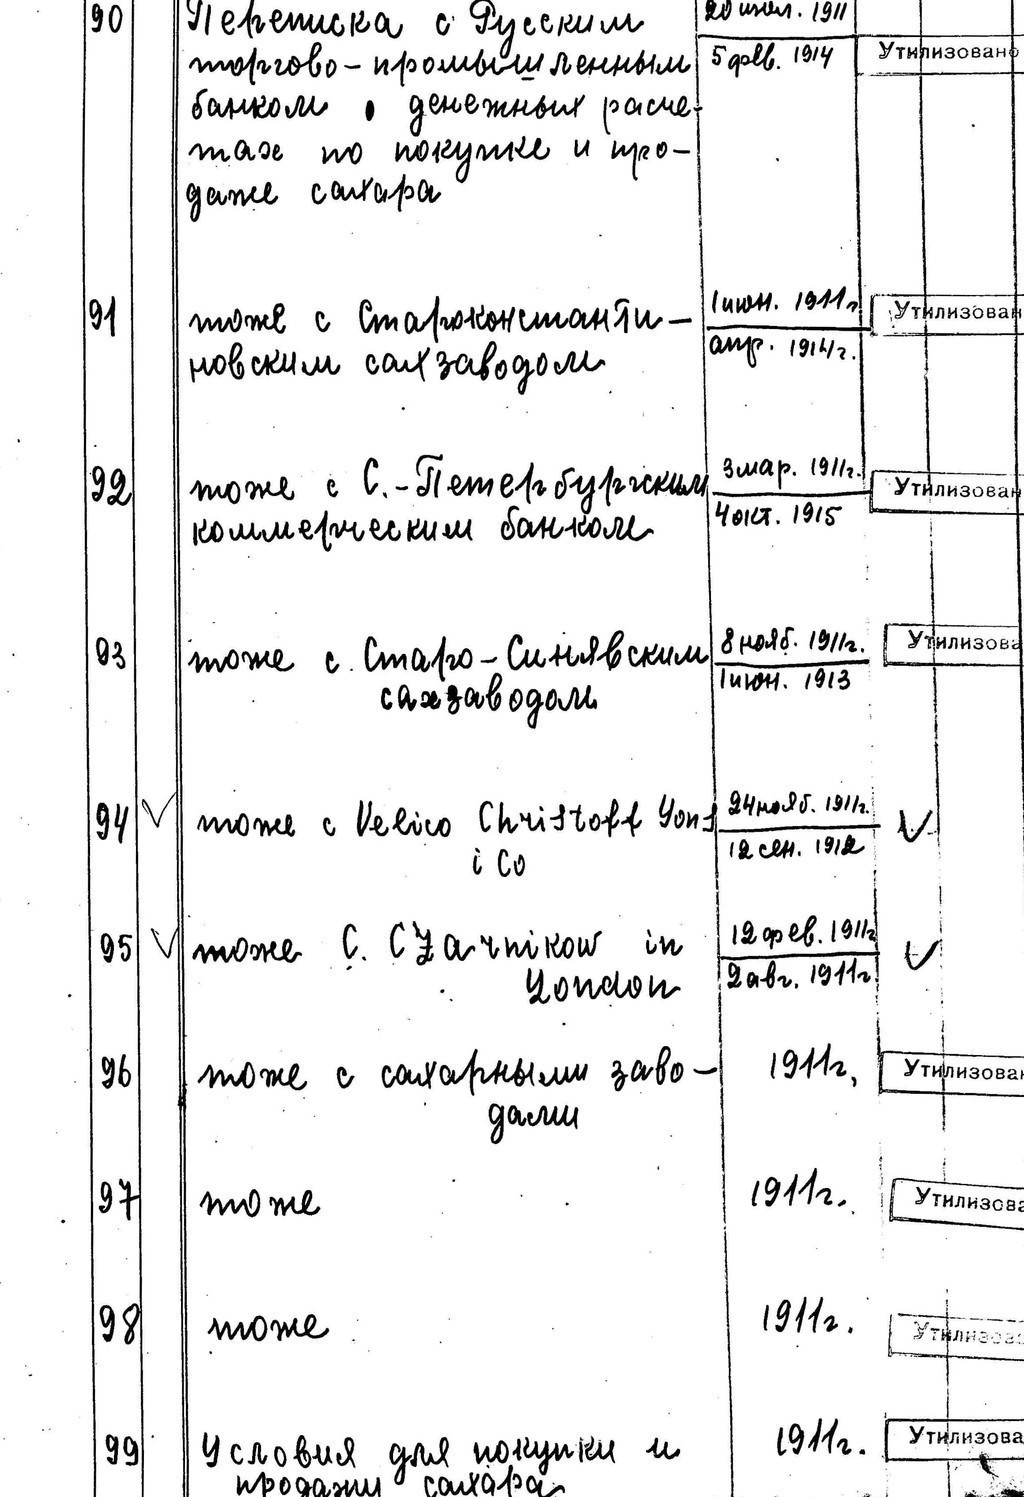 90 Переписка с Русским 20 июл. 1911
торгово-промышленным 5 фев. 1914 Утилизовано
банком о денежных расче-
тах по покупке и про-
даже сахара
91 тоже с Староконстанти- 1 июн. 1911 г Утилизован
новским сахзаводом апр. 1914 г.
92 тоже с С.-Петербургским 3 мар. 1911 г. Утилизован
коммерческим банком 4 окт. 1915
93 тоже с Старо-Синявским 8 нояб. 1911 г. Утилизова
сахзаводом 1 июн. 1913
94 V тоже с Velico Christoff Yons 24 нояб. 1911 г. V
i Co 12 сен. 1912
95 V тоже C. CZarnikow in 12 фев. 1911 г V
London 2 авг. 1911 г
96 тоже с сахарными заво- 1911 г, Утилизован
дами
97 тоже 1911 г. Утилизова
98 тоже 1911 г. Утилизова
99 Условия для покупки и 1911 г. Утилизова
продажи сахара